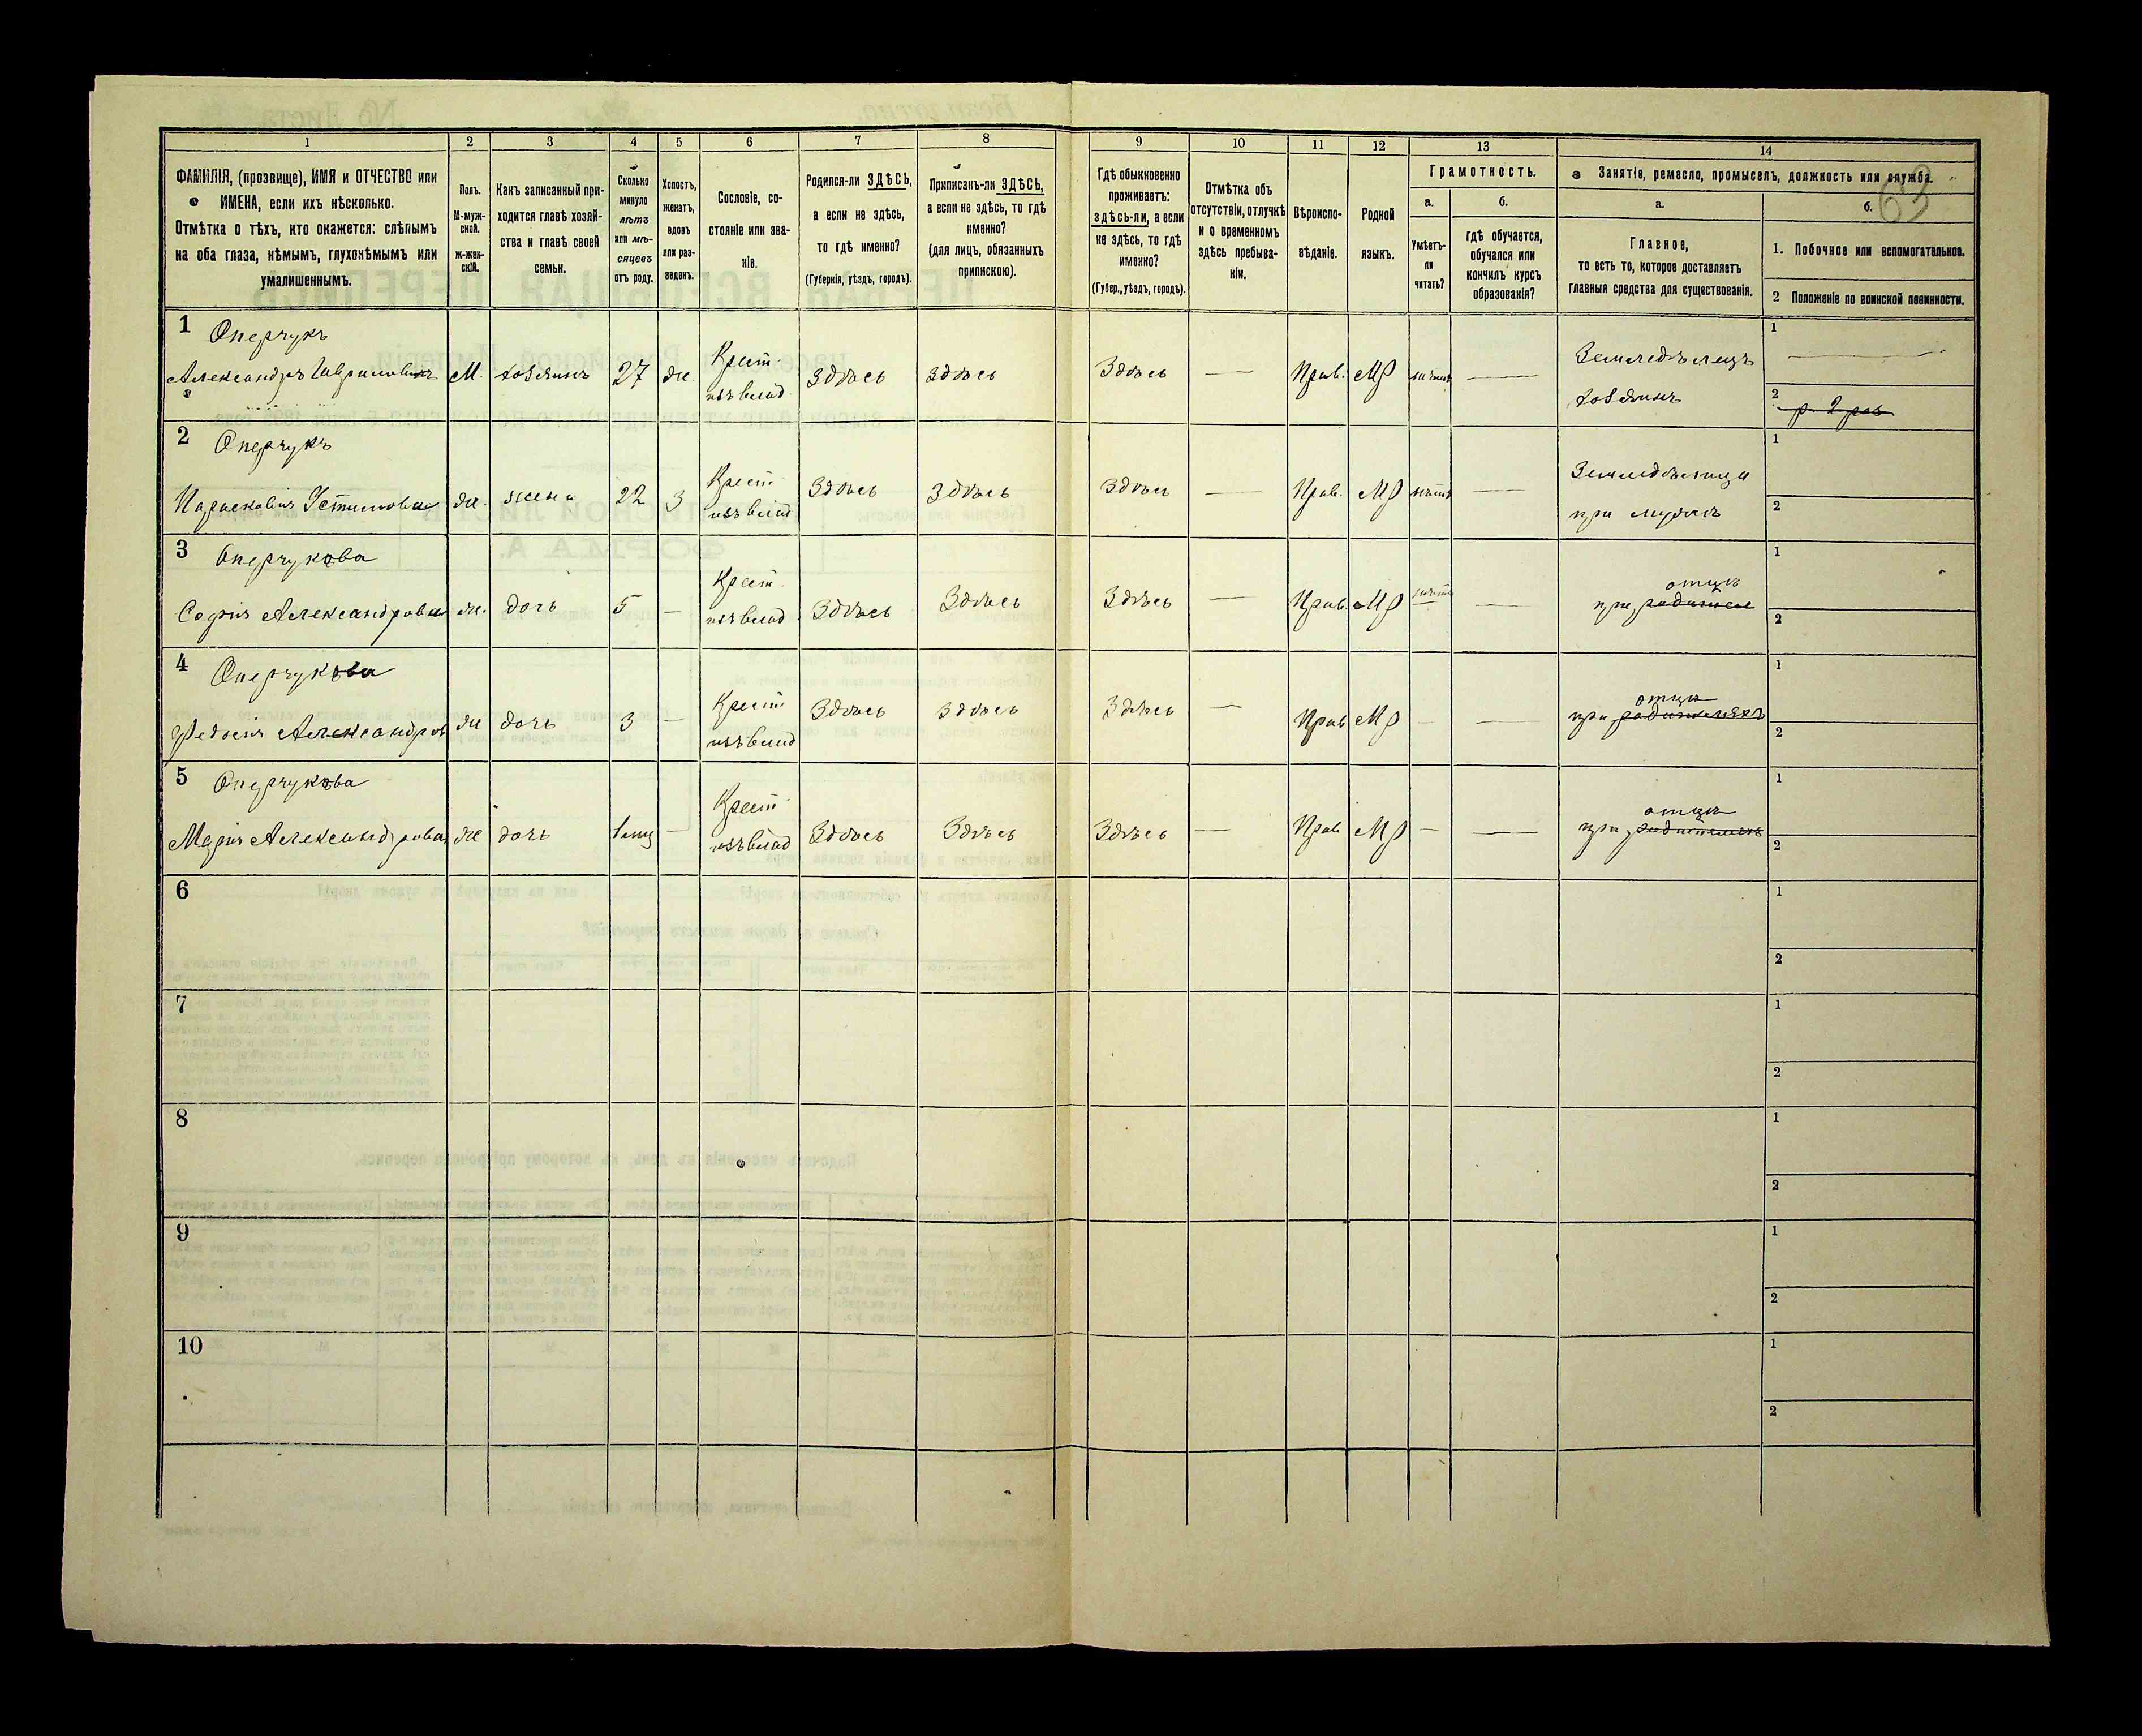 № Листа
1 2 3 4 5 6 7 8 9 10 11 12 13 14
ФАМИЛІЯ, (прозвище), ИМЯ и ОТЧЕСТВО или
ИМЕНА, если ихъ нѣсколько.
Отмѣтка о тѣхъ, кто окажется: слѣпымъ
на оба глаза, нѣмымъ, глухонѣмымъ или
умалишеннымъ.
Полъ.
М-муж-
ской.
Ж-жен-
скій.
Какъ записанный при-
ходится главѣ хозяй-
ства и главѣ своей
семьи.
Сколько
минуло
лѣтъ
или мѣ-
сяцевъ
отъ роду.
Холостъ,
женатъ,
вдовъ
или раз-
веденъ.
Сословіе, со-
стояніе или зва-
ніе.
Родился-ли ЗДѢСЬ,
а если не здѣсь,
то гдѣ именно?
(Губернія, уѣздъ, городъ).
Приписанъ-ли ЗДѢСЬ,
а если не здѣсь, то гдѣ
именно?
(для лицъ, обязанныхъ
припискою).
Гдѣ обыкновенно
проживаетъ:
здѣсь-ли, а если
не здѣсь, то гдѣ
именно?
(Губер., уѣздъ, городъ).
Отмѣтка объ
отсутствіи, отлучкѣ
и о временномъ
здѣсь пребыва-
ніи.
Вѣроиспо-
вѣданіе.
Родной
языкъ.
Грамотность.
а.
Умѣетъ-
ли
читать?
б.
гдѣ обучается,
обучался или
кончилъ курсъ
образованія?
Занятіе, ремесло, промыселъ, должность или служба.
63
а.
Главное,
то есть то, которое доставляетъ
главныя средства для существованія.
б.
1. Побочное или вспомогательное.
2 Положеніе по воинской повинности.
1 Оперчукъ
Александръ Гавриловичъ М. хозяинъ 27 Ж. Крест. изъ влад. Здѣсь Здѣсь Здѣсь — Прав. МР — Земледѣлецъ хозяинъ
1 —
2
2 Оперчукъ
Параскевія Устинова Ж. жена 22 З Крест. изъ влад. Здѣсь Здѣсь Здѣсь — Прав. МР — Земледѣлица при мужѣ
1
2
3 Оперчукова
Софія Александрова Ж. дочь 5 — Крест. изъ влад. Здѣсь Здѣсь Здѣсь — Прав. МР — при родителе отцѣ
1
2
4 Оперчукова
Федосія Александров Ж дочь 3 — Крест. изъ влад Здѣсь Здѣсь Здѣсь — Прав МР — — при родителяхъ отцѣ
1
2
5 Оперчукова
Марія Александрова Ж дочь — Крест. изъ влад Здѣсь Здѣсь Здѣсь — Прав МР — — при родителяхъ отцѣ
1
2
6
1
2
7
1
2
8
1
2
9
1
2
10
1
2